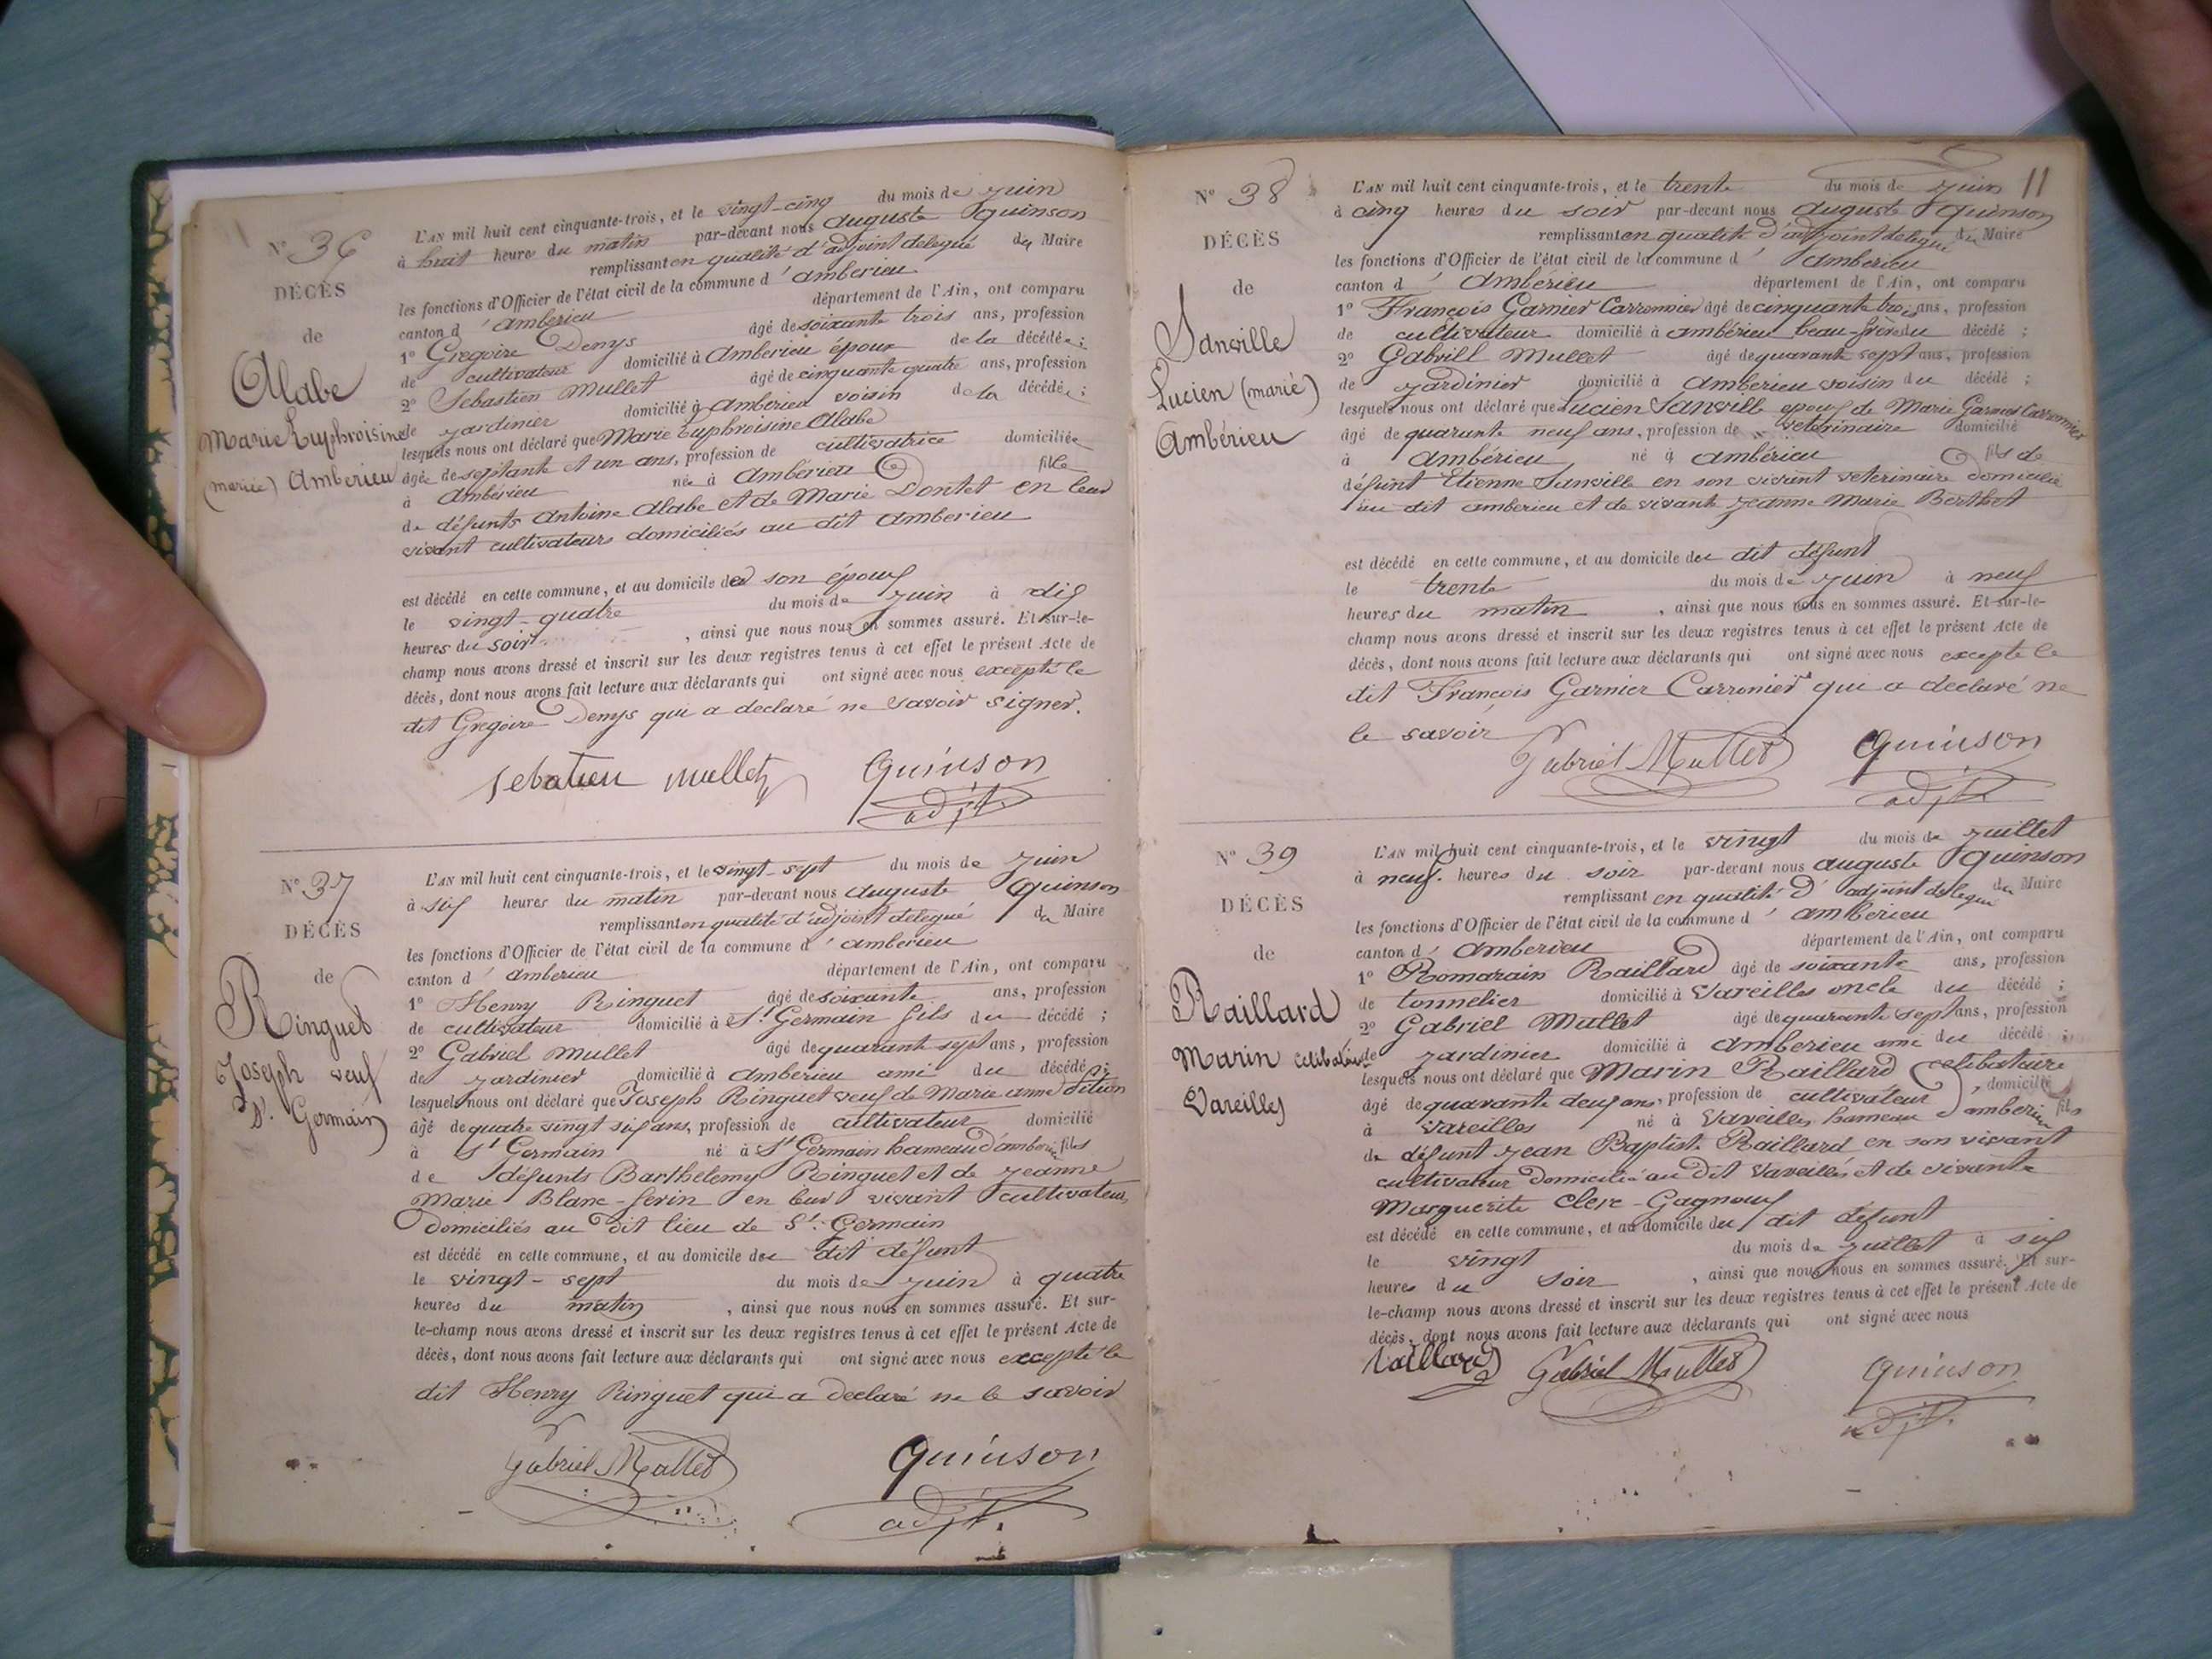 N° 36
DÉCÈS
de
Alabe
Marie Euphroisine
(mariée) Amberieu
L'AN mil huit cent cinquante-trois, et le vingt-cinq du mois de juin
à huit heure du matin par-devant nous auguste Quinson
remplissant en qualité d'adjoint delegué du Maire
les fonctions d'Officier de l'état civil de la commune d'amberieu
canton d'amberieu département de l'Ain, ont comparu
1° Gregoire Denys âgé de soixante trois ans, profession
de cultivateur domicilié à Amberieu époux de la décédée ;
2° Sebastien Mullet âgé de cinquante quatre ans, profession
de jardinier domicilié à Amberieu voisin de la décédée ;
lesquels nous ont déclaré que Marie Euphroisine Alabe
âgée de septante et un ans, profession de cultivatrice domiciliée
à Ambérieu née à Ambérieu fille
de défunts Antoine Alabe et de Marie Dontet en leur
vivant cultivateurs domiciliés au dit Amberieu
est décédé en cette commune, et au domicile de son époux
le vingt-quatre du mois de juin à dix
heures du soir, ainsi que nous nous en sommes assuré. Et sur-le-
champ nous avons dressé et inscrit sur les deux registres tenus à cet effet le présent Acte de
décès, dont nous avons fait lecture aux déclarants qui ont signé avec nous excepté le
dit Gregoire Denys qui a declaré ne savoir signer.
sebatien mullet Quinson
adjt.
N° 37
DÉCÈS
de
Ringuet
Joseph veuf
St. Germain
L'AN mil huit cent cinquante-trois, et le vingt-sept du mois de juin
à six heures du matin par-devant nous auguste Quinson
remplissant en qualité d'adjoint delegué du Maire
les fonctions d'Officier de l'état civil de la commune d'amberieu
canton d'amberieu département de l'Ain, ont comparu
1° Henry Ringuet âgé de soixante ans, profession
de cultivateur domicilié à St Germain fils du décédé ;
2° Gabriel mullet âgé de quarante sept ans, profession
de jardinier domicilié à amberieu ami du décédé ;
lesquels nous ont déclaré que Joseph Ringuet veuf de Marie anne
âgé de quatre vingt six ans, profession de cultivateur domicilié
à St Germain né à St Germain hameau d'amberieu fils
de défunts Barthelemy Ringuet et de jeanne
Marie Blanc-ferin en leur vivant cultivateurs
domiciliés au dit lieu de St. Germain
est décédé en cette commune, et au domicile du dit défunt
le vingt-sept du mois de juin à quatre
heures du matin, ainsi que nous nous en sommes assuré. Et sur-
le-champ nous avons dressé et inscrit sur les deux registres tenus à cet effet le présent Acte de
décès, dont nous avons fait lecture aux déclarants qui ont signé avec nous excepté le
dit Henry Ringuet qui a declaré ne le savoir
Gabriel Mullet Quinson
adjt.
11
N° 38
DÉCÈS
de
Janville
Lucien (marié)
Ambérieu
L'AN mil huit cent cinquante-trois, et le trente du mois de juin
à cinq heures du soir par-devant nous auguste Quinson
remplissant en qualité d'adjoint delegué du Maire
les fonctions d'Officier de l'état civil de la commune d'amberieu
canton d'Ambérieu département de l'Ain, ont comparu
1° François Garnier Carronnier âgé de cinquante trois ans, profession
de cultivateur domicilié à ambérieu beau-frère du décédé ;
2° Gabrill Mullet âgé de quarante sept ans, profession
de jardinier domicilié à Amberieu voisin du décédé ;
lesquels nous ont déclaré que Lucien Janville epoux de Marie Garnier Carronnier
âgé de quarante neuf ans, profession de veterinaire domicilié
à Ambérieu né à ambérieu fils de
défunt Etienne Janville en son vivant veterinaire domicilié
au dit amberieu et de vivante jeanne Marie Berthet
est décédé en cette commune, et au domicile du dit défunt
le trente du mois de juin à neuf
heures du matin, ainsi que nous nous en sommes assuré. Et sur-le-
champ nous avons dressé et inscrit sur les deux registres tenus à cet effet le présent Acte de
décès, dont nous avons fait lecture aux déclarants qui ont signé avec nous excepté le
dit François Garnier Carronier qui a declaré ne
le savoir
Gabriel Mullet Quinson
adjt
N° 39
DÉCÈS
de
Raillard
Marin celibataire
Vareilles
L'AN mil huit cent cinquante-trois, et le vingt du mois de juillet
à neuf heures du soir par-devant nous auguste Quinson
remplissant en qualité d'adjoint delegué du Maire
les fonctions d'Officier de l'état civil de la commune d'amberieu
canton d'Amberieu département de l'Ain, ont comparu
1° Romarain Raillard âgé de soixante ans, profession
de tonnelier domicilié à Vareilles oncle du décédé ;
2° Gabriel Mullet âgé de quarante sept ans, profession
de jardinier domicilié à Amberieu ami du décédé ;
lesquels nous ont déclaré que Marin Raillard celibataire
âgé de quarante deux ans, profession de cultivateur, domicilié
à vareilles né à Vareilles hameau d'amberieu fils
de défunt jean Baptiste Raillard en son vivant
cultivateur domicilié au dit Vareilles et de vivante
Marguerite Clerc-Gagneux
est décédé en cette commune, et au domicile du dit défunt
le vingt du mois de juillet à six
heures du soir, ainsi que nous nous en sommes assuré. Et sur-
le-champ nous avons dressé et inscrit sur les deux registres tenus à cet effet le présent Acte de
décès, dont nous avons fait lecture aux déclarants qui ont signé avec nous
Raillard Gabriel Mullet Quinson
adjt.